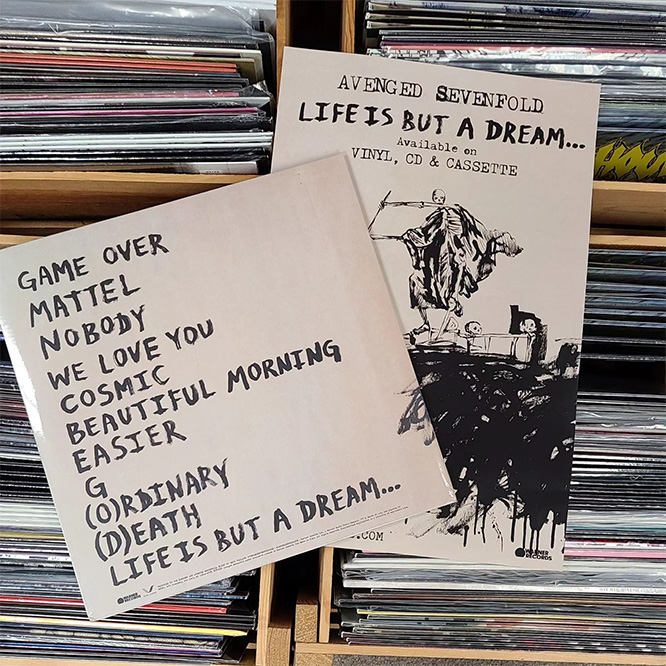 AVENGED SEVENFOLD
LIFE IS BUT A DREAM...
Available on
VINYL, CD & CASSETTE
.COM
WARNER
RECORDS
GAME OVER
MATTEL
NOBODY
WE LOVE YOU
COSMIC
BEAUTIFUL MORNING
EASIER
G
(O)RDINARY
(D)EATH
LIFE IS BUT A DREAM...
WARNER
RECORDS